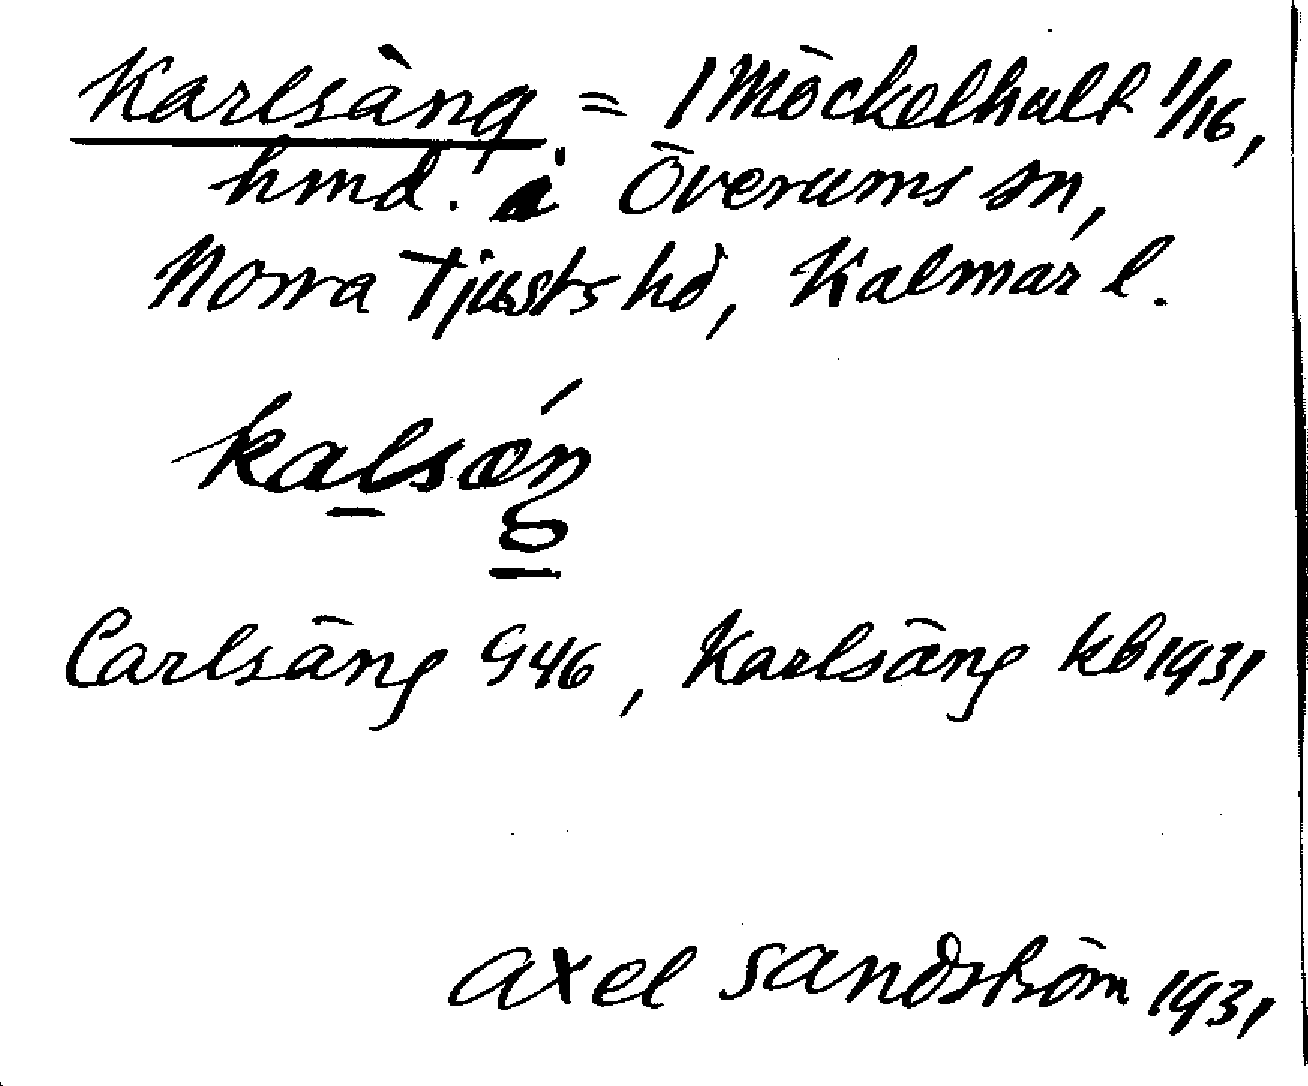 Karlsäng = 1 Möckelhult 1/16,
hmd. i Överums sn,
Norra Tjusts hd, Kalmar l.
kalsæŋ́
Carlsäng G46, Karlsäng kb 1931
Axel Sandström 1931